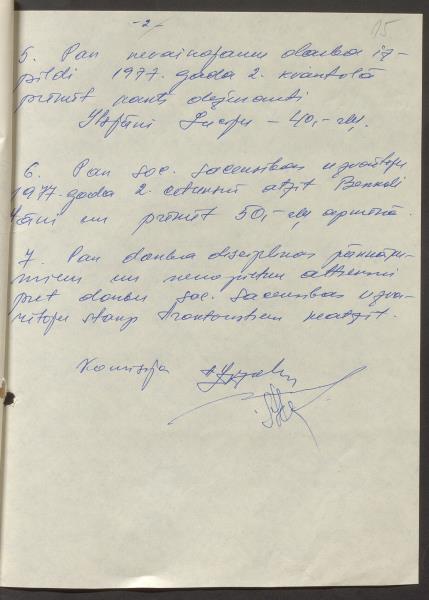 -2-
15
5. Par nevainojamu darba iz-
pildi 1977. gada 2. kvartālā
prēmēt kanti dežuranti
40,- rbļ.
6. Par soc. sacensības uzvarētāju
1977. gada 2. ceturksnī atzīt
Jāni un prēmēt 50,- rbļ apmērā.
7. Par darba disciplīnas pārkāpu-
miem un nenopietnu attieksmi
pret darbu soc. sacensības uzva-
rētāju starp neatzīt.
Komisija